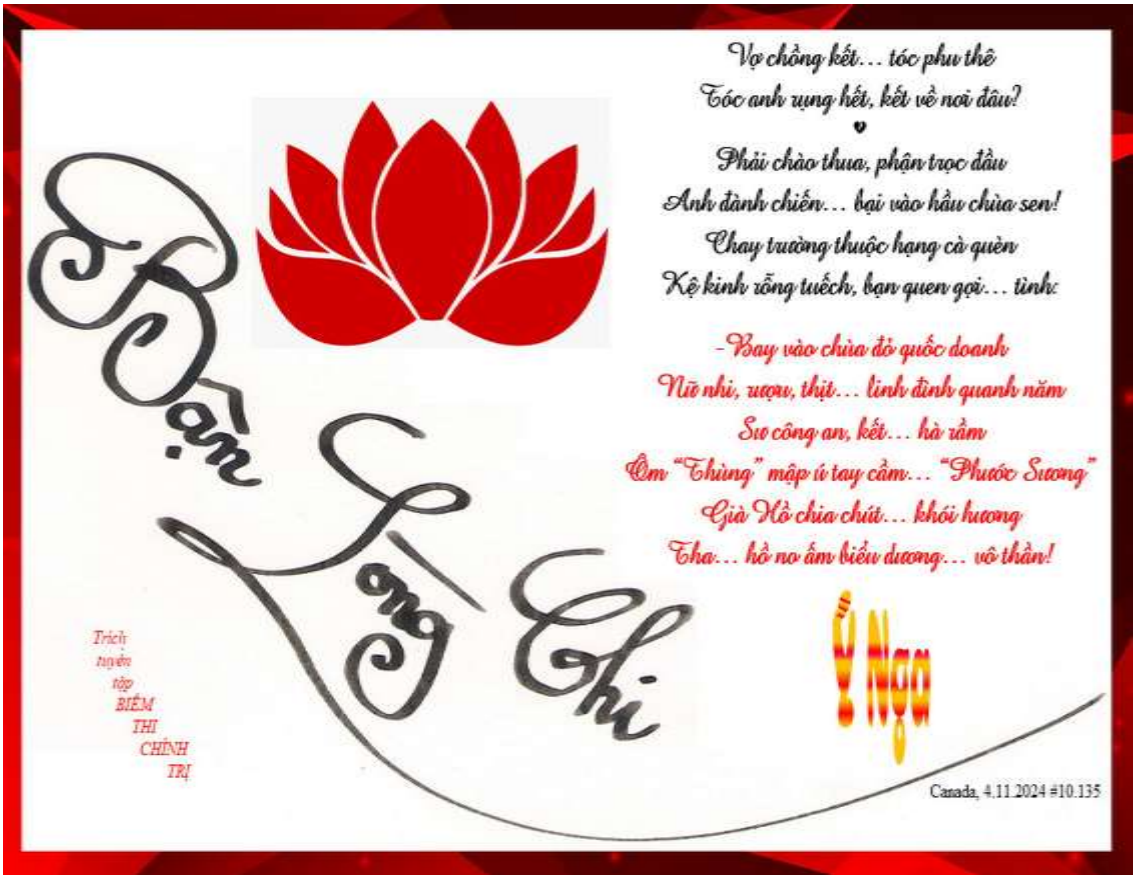 Bận Lòng Chi
Vợ chồng kết... tóc phu thê
Tóc anh rụng hết, kết về nơi đâu?
Phải chào thua, phận trọc đầu
Anh đành chiến... bại vào hầu chùa sen!
Chay trường thuộc hạng cà quèn
Kệ kinh rỗng tuếch, bạn quen gọi... tình:
-Bay vào chùa đỏ quốc doanh
Nữ nhi, rượu, thịt... linh đình quanh năm
Sư công an, kết... hà rầm
Ôm “Thùng” mập ú tay cầm... “Phước Sương”
Già Hồ chia chút... khói hương
Tha... hồ no ấm biểu dương... vô thần!
Ý Nga
Trích
tuyển
tập
BIẾM
THI
CHÍNH
TRỊ
Canada, 4.11.2024 #10.135